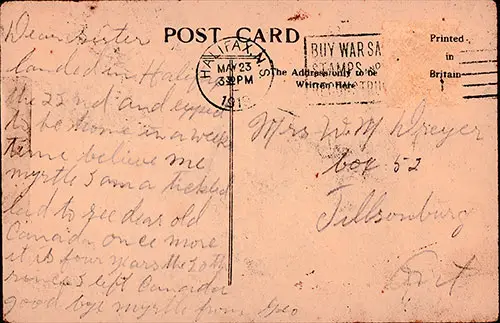 POST CARD
Printed
in
Britain
The Address only to be
Written Here
HALIFAX, N.S.
MAY 23
3 30 PM
191
BUY WAR SA
STAMPS
Dear Sister
landed in
the 22nd and expect
to be home in a weeks
time believe me
myrtle I am a tickled
lad to see dear old
Canada once more
it is four years the 20th
since I left Canada
good bye myrtle from Geo
Mrs W M Dreyer
box 52
Tillsonburg
Ont